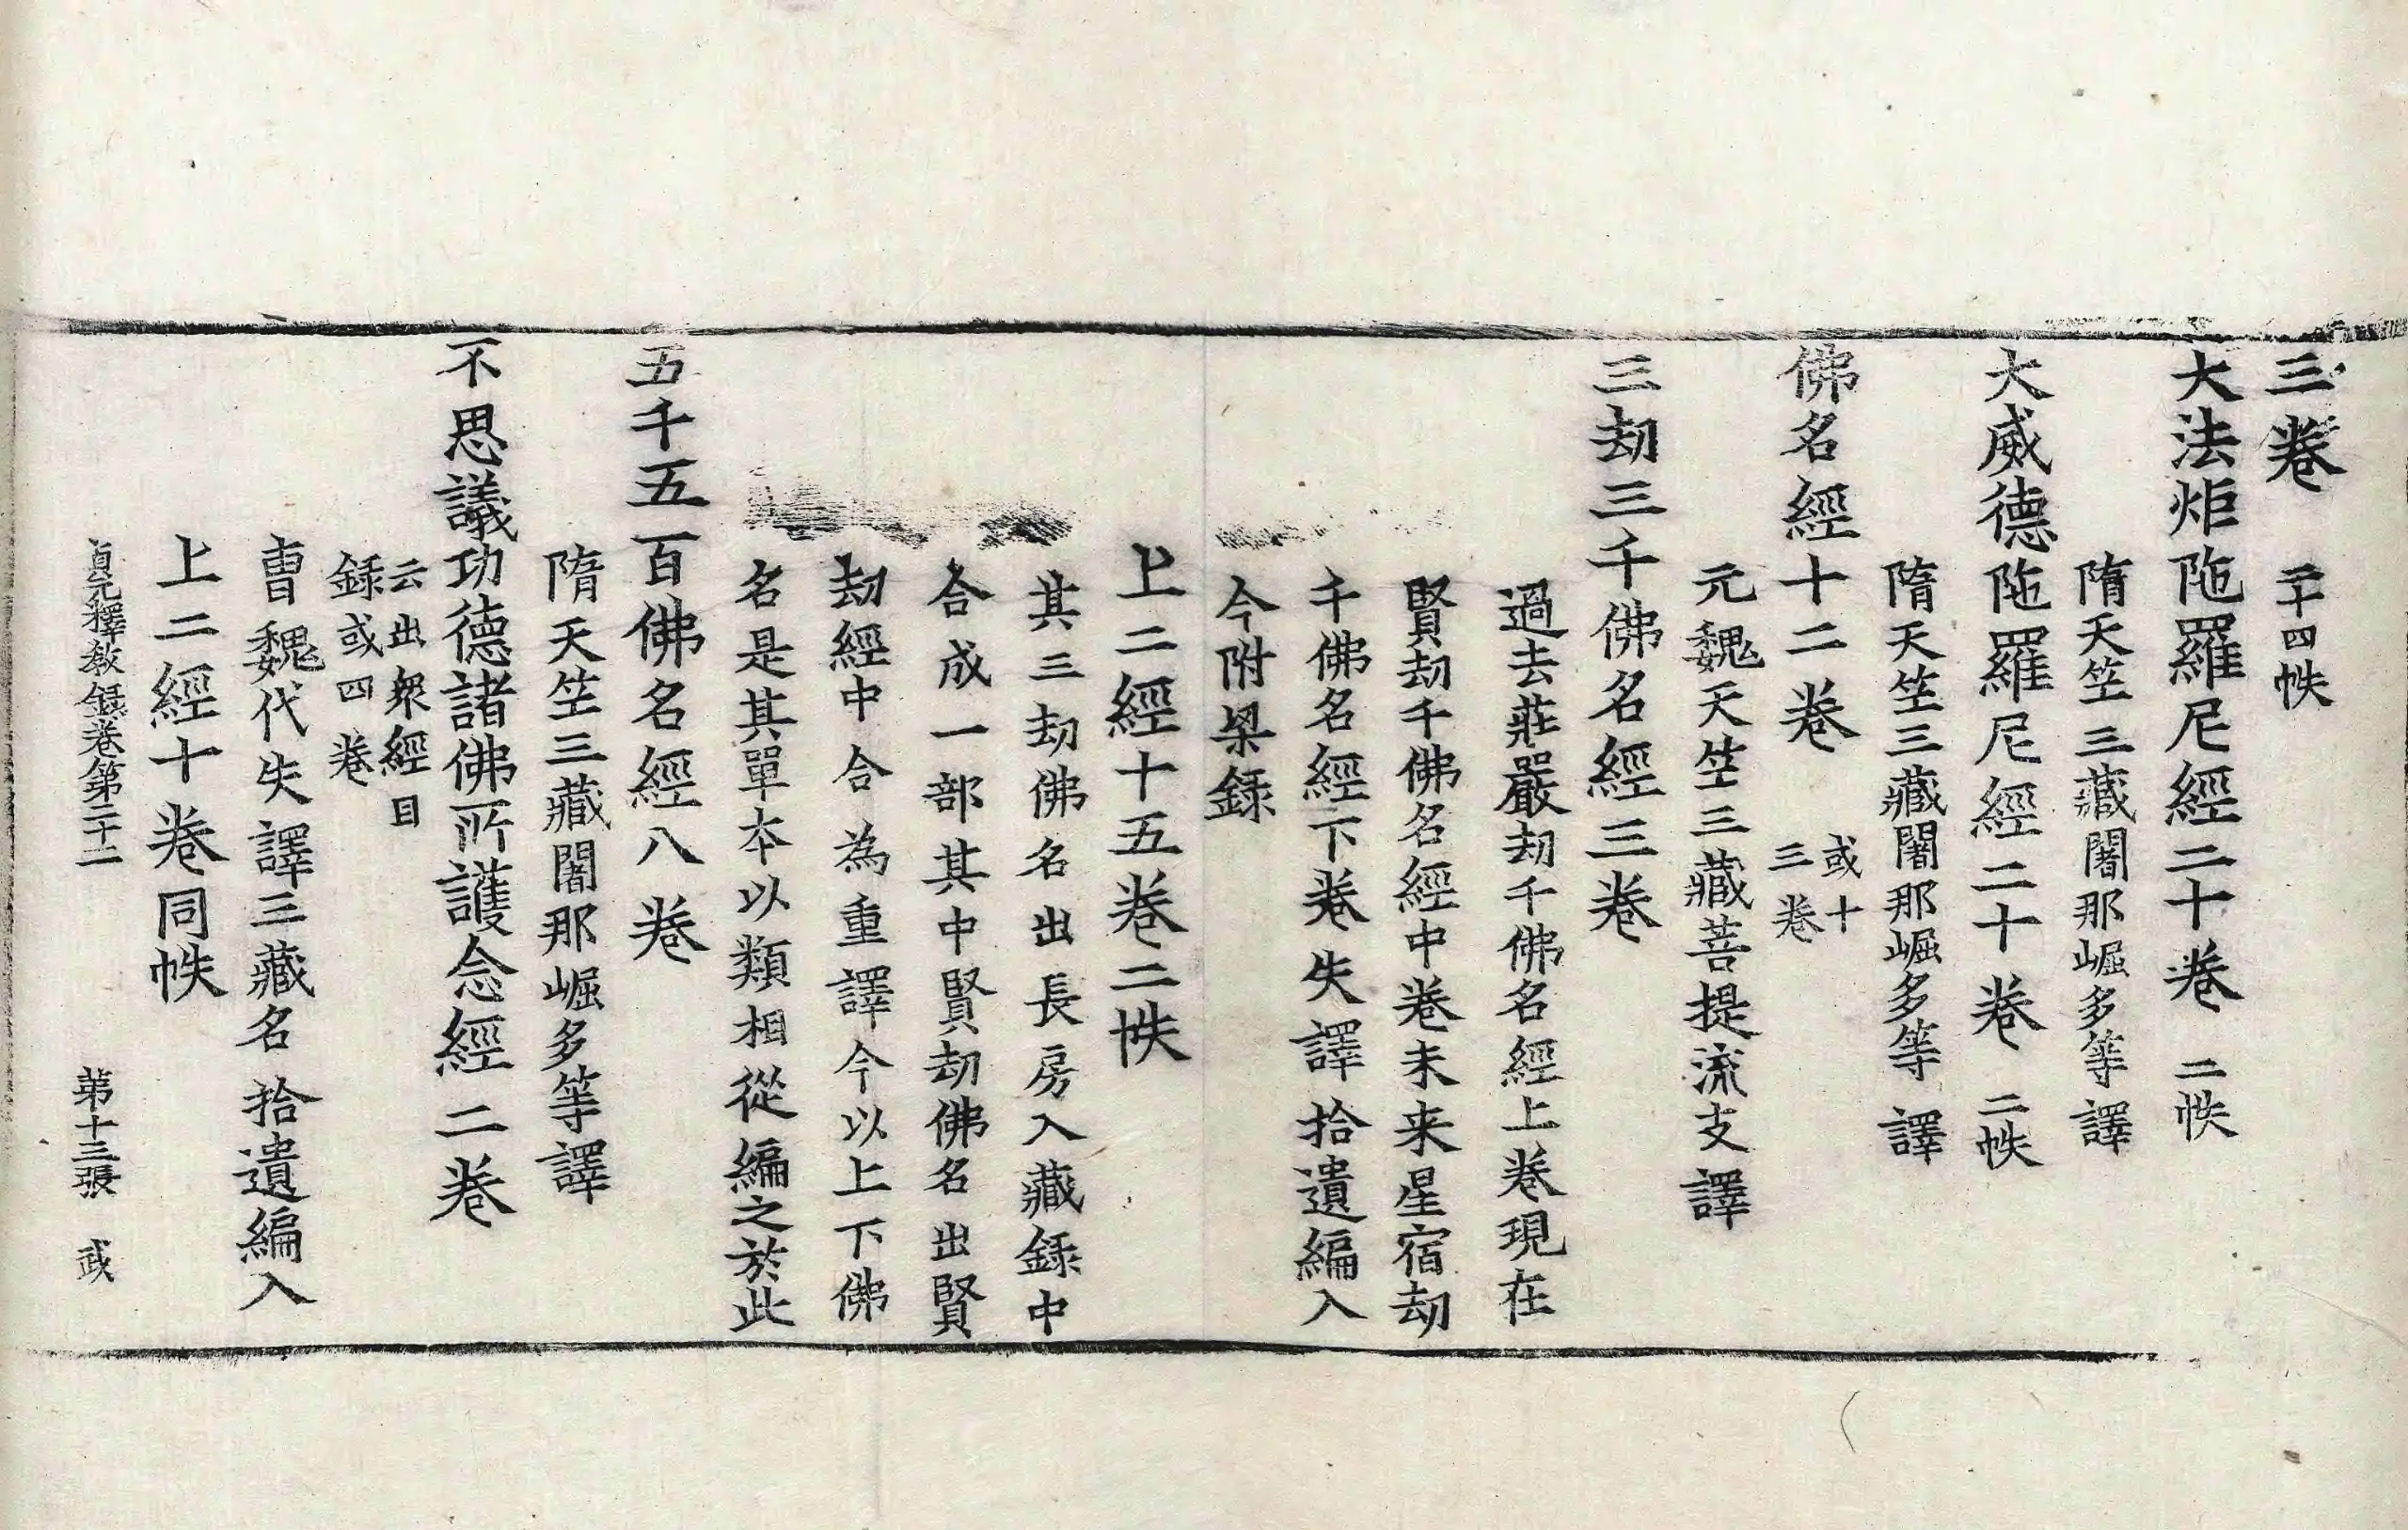 三卷 二十四帙
大法炬陁羅尼經二十卷 二帙
隋天竺三藏闍那崛多等譯
大威德陁羅尼經二十卷 二帙
隋天竺三藏闍那崛多等譯
佛名經十二卷 或十三卷
元魏天竺三藏菩提流支譯
三劫三千佛名經三卷
過去莊嚴劫千佛名經上卷現在
賢劫千佛名經中卷未来星宿劫
千佛名經下卷失譯拾遺編入
今附梁録
上二經十五卷二帙
其三劫佛名出長房入藏録中
合成一部其中賢劫佛名出賢
劫經中合為重譯今以上下佛
名是其單本以類相從編之於此
五千五百佛名經八卷
隋天竺三藏闍那崛多等譯
不思議功德諸佛所護念經二卷
云出衆經目
録或四卷
曹魏代失譯三藏名拾遺編入
上二經十卷同帙
貞元釋教録卷第二十二 第十三張 武